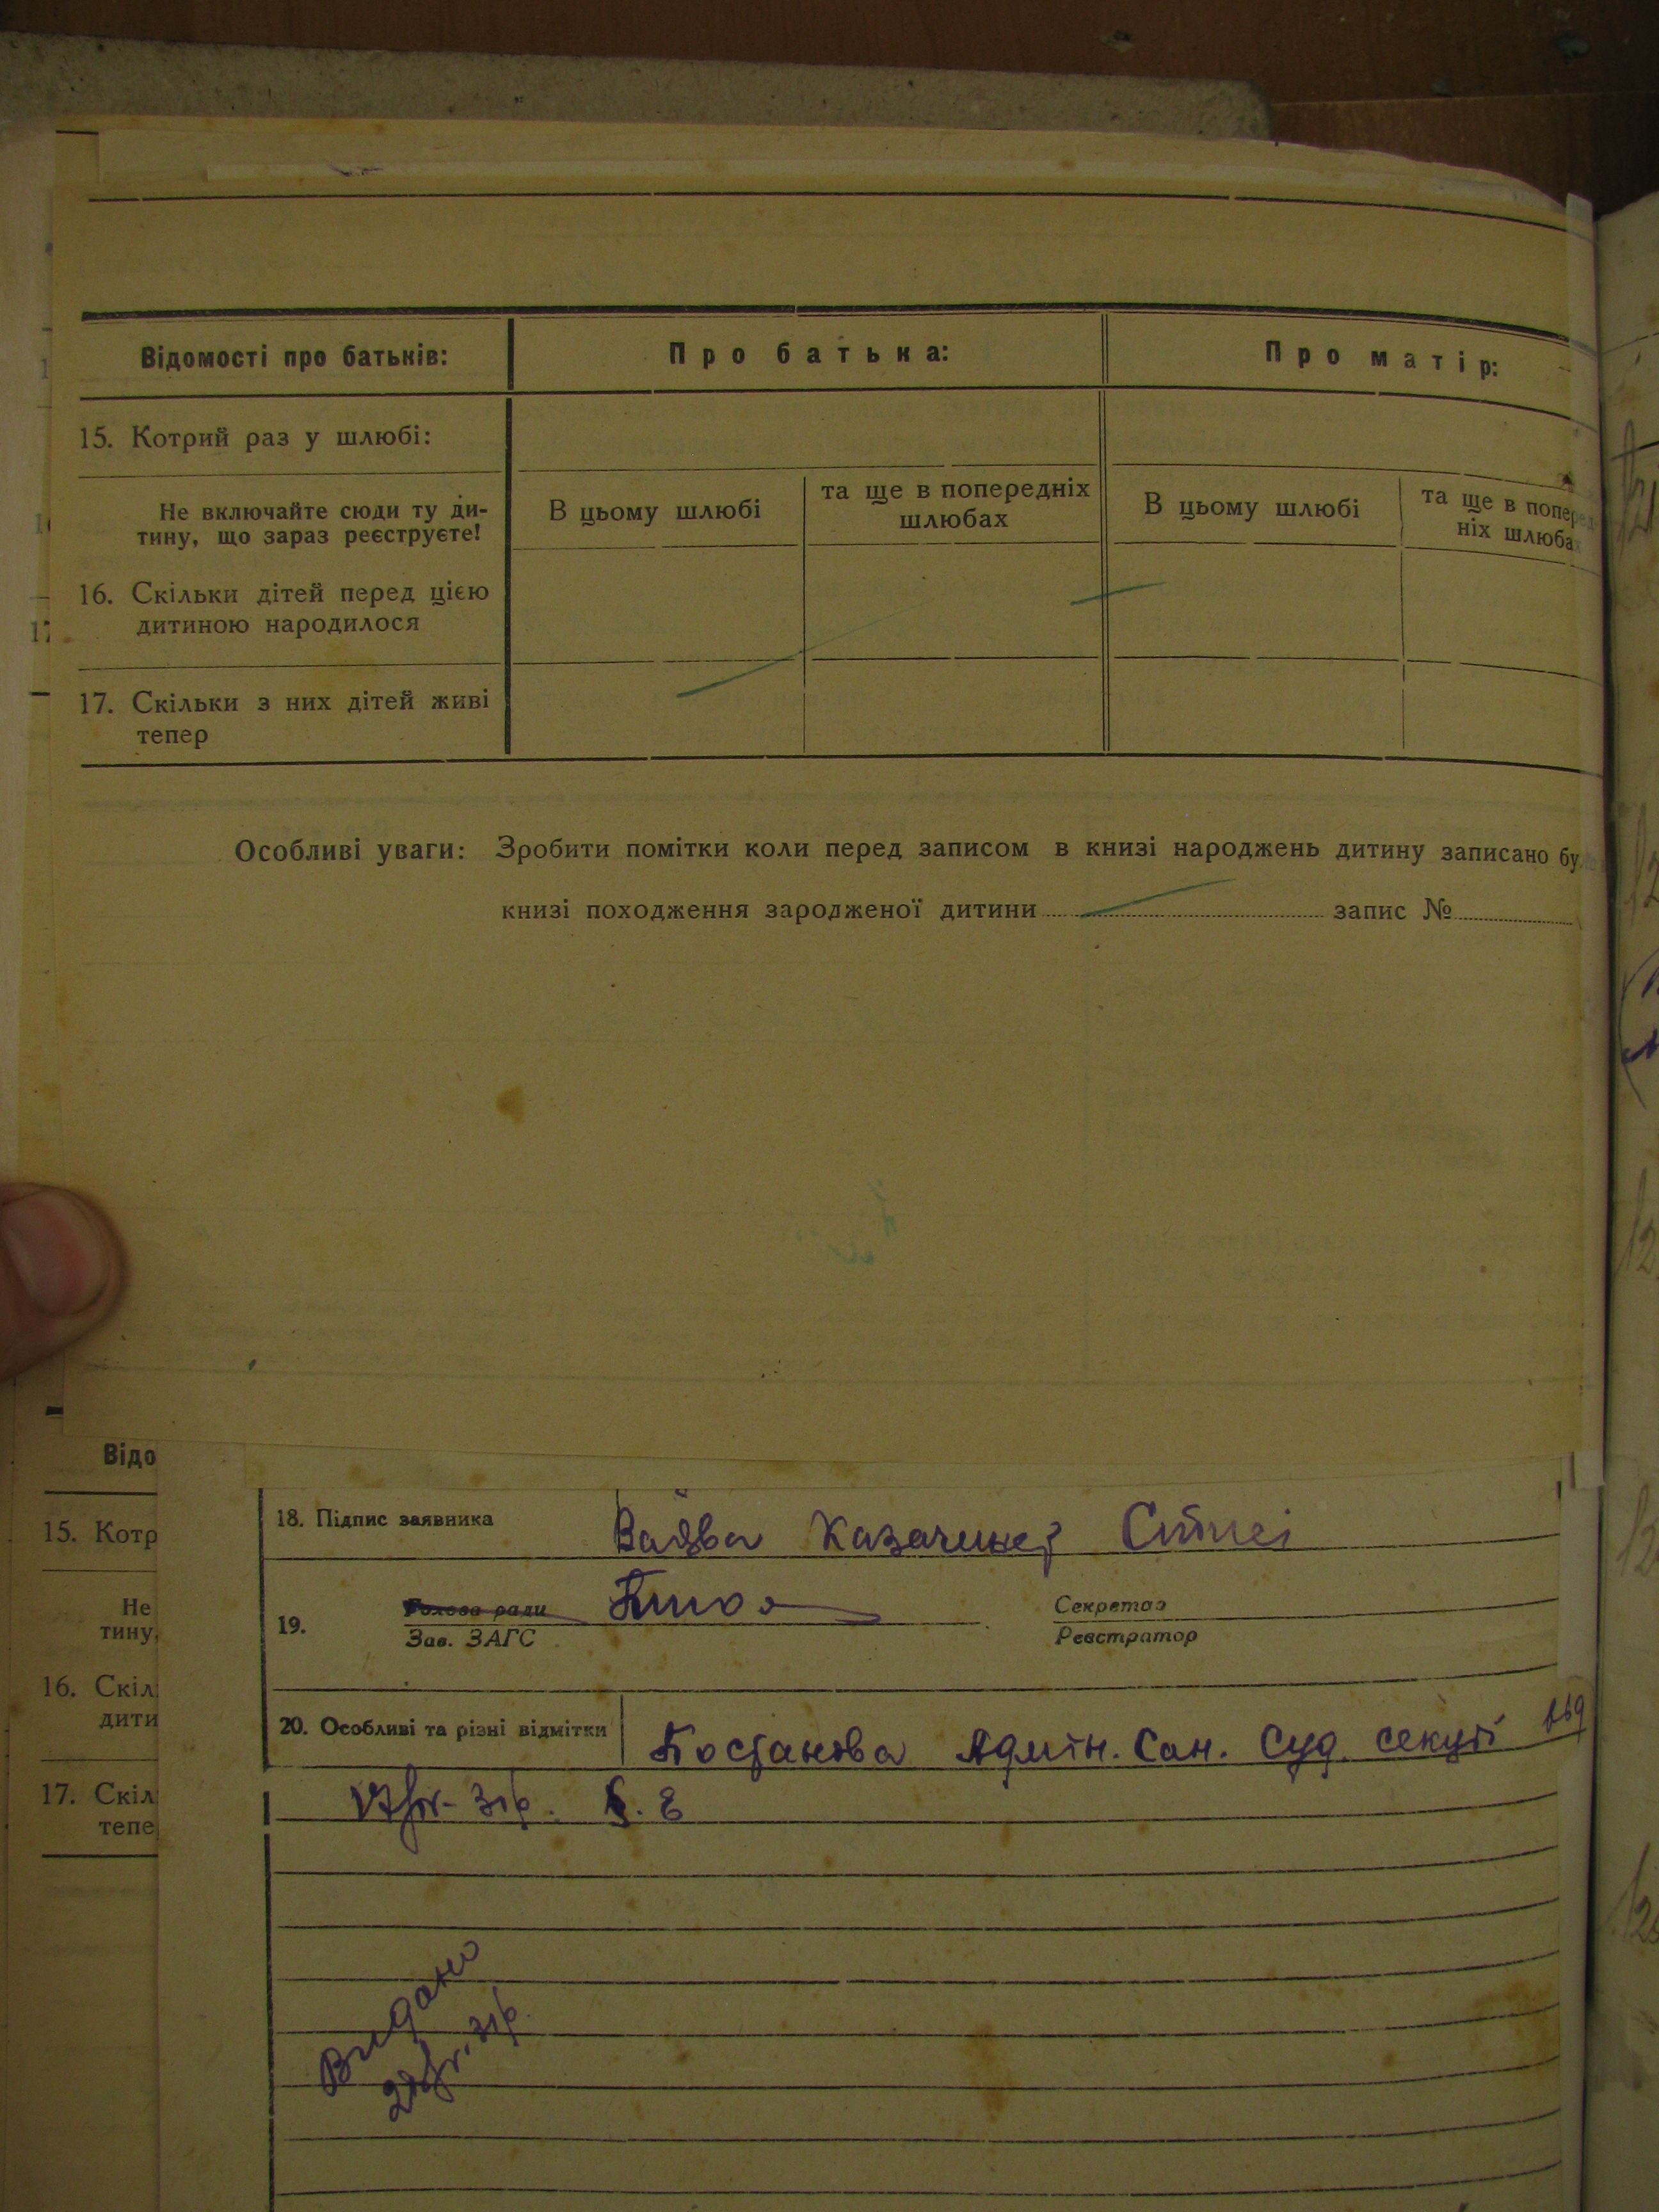 Відомості про батьків:
Про батька:
Про матір:
15. Котрий раз у шлюбі:
Не включайте сюди ту ди-
тину, що зараз реєструєте!
В цьому шлюбі
та ще в попередніх
шлюбах
В цьому шлюбі
та ще в поперед
ніх шлюбах
16. Скільки дітей перед цією
дитиною народилося
17. Скільки з них дітей живі
тепер
Особливі уваги: Зробити помітки коли перед записом в книзі народжень дитину записано бу
книзі походження зародженої дитини запис №
Відо
15. Котр
Не
тину,
16. Скіл
дити
17. Скіл
тепе
18. Підпис заявника
19. Голова ради
Зав. ЗАГС
Секретар
Реєстратор
20. Особливі та різні відмітки Постанова Адмін. Сан. Суд. секції
Видано